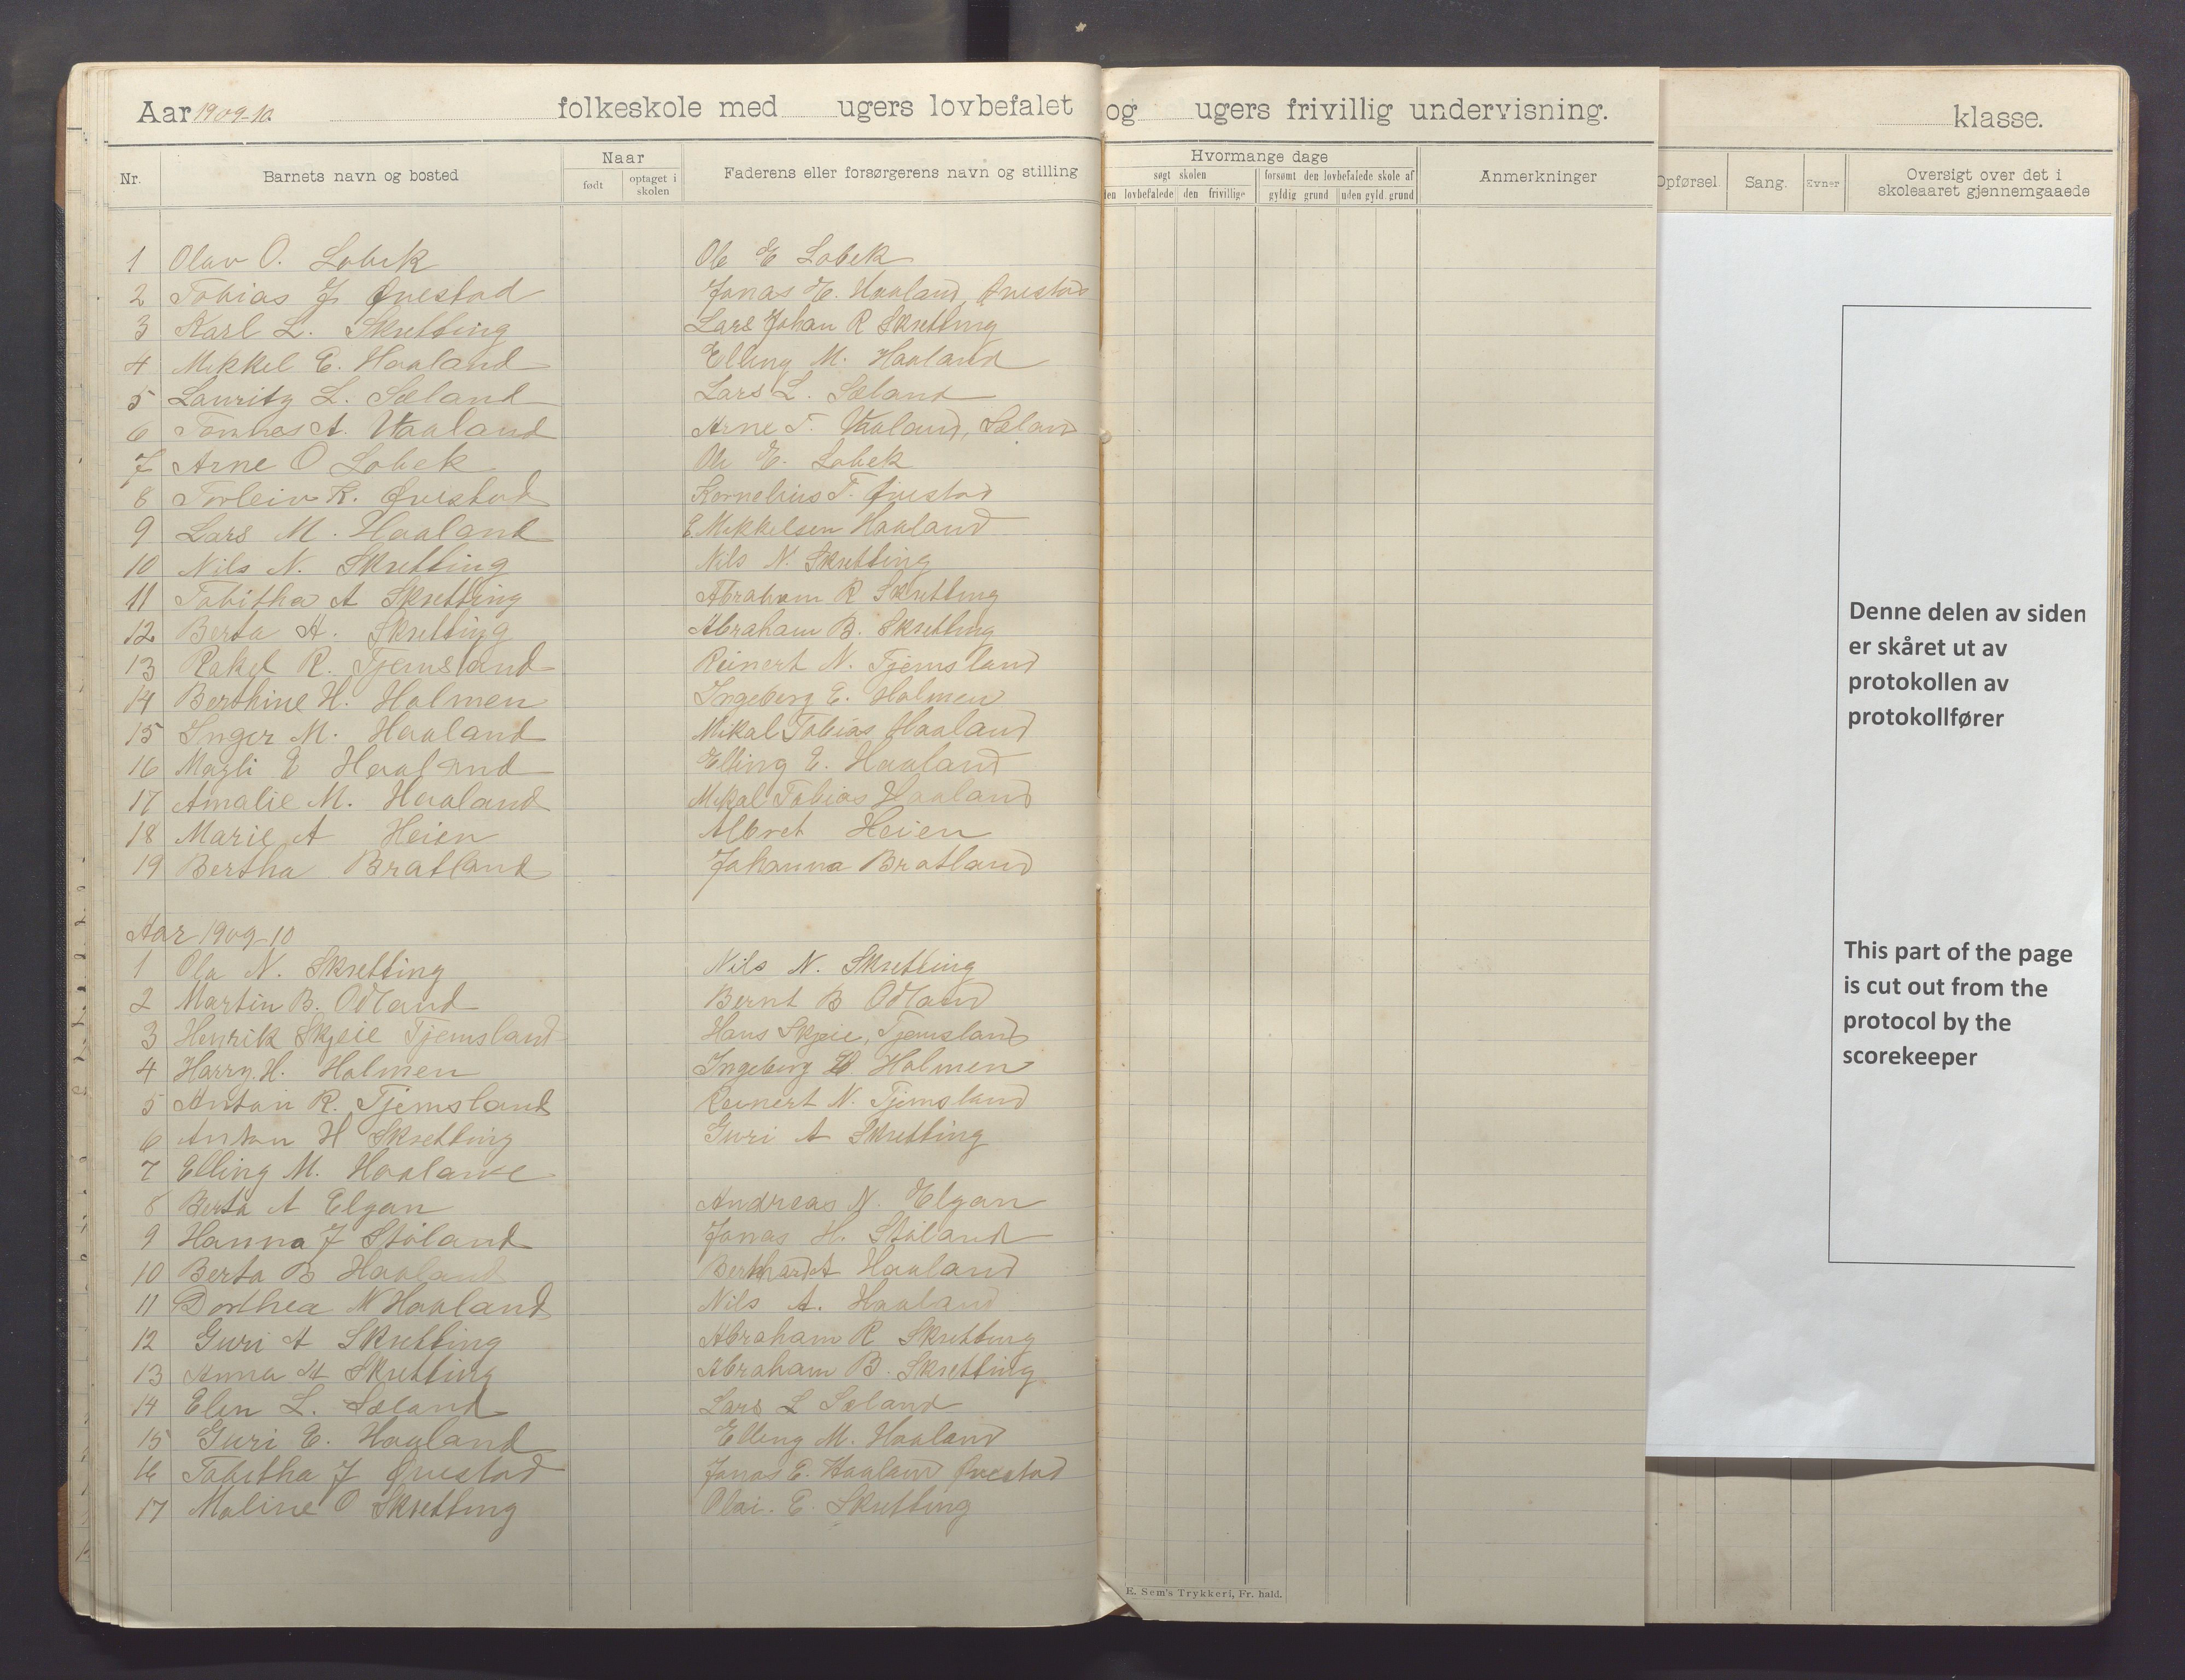 Aar 1909-10. folkeskole med ugers lovbefalet og ugers frivillig undervisning. klasse.
Nr. Barnets navn og bosted Naar Faderens eller forsørgerens navn og stilling Hvormange dage Anmerkninger Opførsel. Sang. Evner Oversigt over det i skoleaaret gjennemgaaede
født optaget i skolen søgt skolen forsømt den lovbefalede skole af
den lovbefalede den frivillige gyldig grund uden gyld. grund
1 Olav O. Lobek Ole E Lobek
2 Tobias J Qvestad Jonas E. Haaland, Qvestad
3 Karl L. Skretting Lars Johan R Skretting
4 Mikkel E. Haaland Elling M. Haaland
5 Lauritz L. Sæland Lars L. Sæland
6 Tønnes A. Haaland Arne T. Haaland, Sæland
7 Arne O Lobek Ole E. Lobek
8 Torleiv K. Qvestad Kornelius T. Qvestad
9 Lars M. Haaland E Mikkelsen Haaland
10 Nils N. Skretting Nils N. Skretting
11 Tabitha A Skretting Abraham R Skretting
12 Berta A. Skretting Abraham B. Skretting
13 Rakel R. Tjemsland Reinert N. Tjemsland
14 Berthine H. Holmen Ingeborg E. Holmen
15 Inger M. Haaland Mikal Tobias Haaland
16 Magli E Haaland Elling E. Haaland
17 Amalie M. Haaland Mikal Tobias Haaland
18 Marie A Heien Albret Heien
19 Bertha Bratland Johanna Bratland
Aar 1909-10
1 Ola N. Skretting Nils N. Skretting
2 Martin B. Odland Bernt B Odland
3 Henrik Skjeie Tjemsland Hans Skjeie, Tjemsland
4 Harry. H. Holmen Ingeborg Holmen
5 Anton R. Tjemsland Reinert N. Tjemsland
6 Anton H Skretting Guri A Skretting
7 Elling M. Haaland
8 Berta A Elgan Andreas N. Elgan
9 Hanna J Støland Jonas H. Støland
10 Berta B Haaland Bernhard A Haaland
11 Dorthea N Haaland Nils A. Haaland
12 Guri A Skretting Abraham R Skretting
13 Anna A Skretting Abraham B. Skretting
14 Elen L. Sæland Lars L Sæland
15 Guri E. Haaland Elling M. Haaland
16 Tabitha J Qvestad Jonas E. Haaland Qvestad
17 Maline O Skretting Olai. E. Skretting
E. Sem's Trykkeri, Fr. hald.
Denne delen av siden
er skåret ut av
protokollen av
protokollfører
This part of the page
is cut out from the
protocol by the
scorekeeper